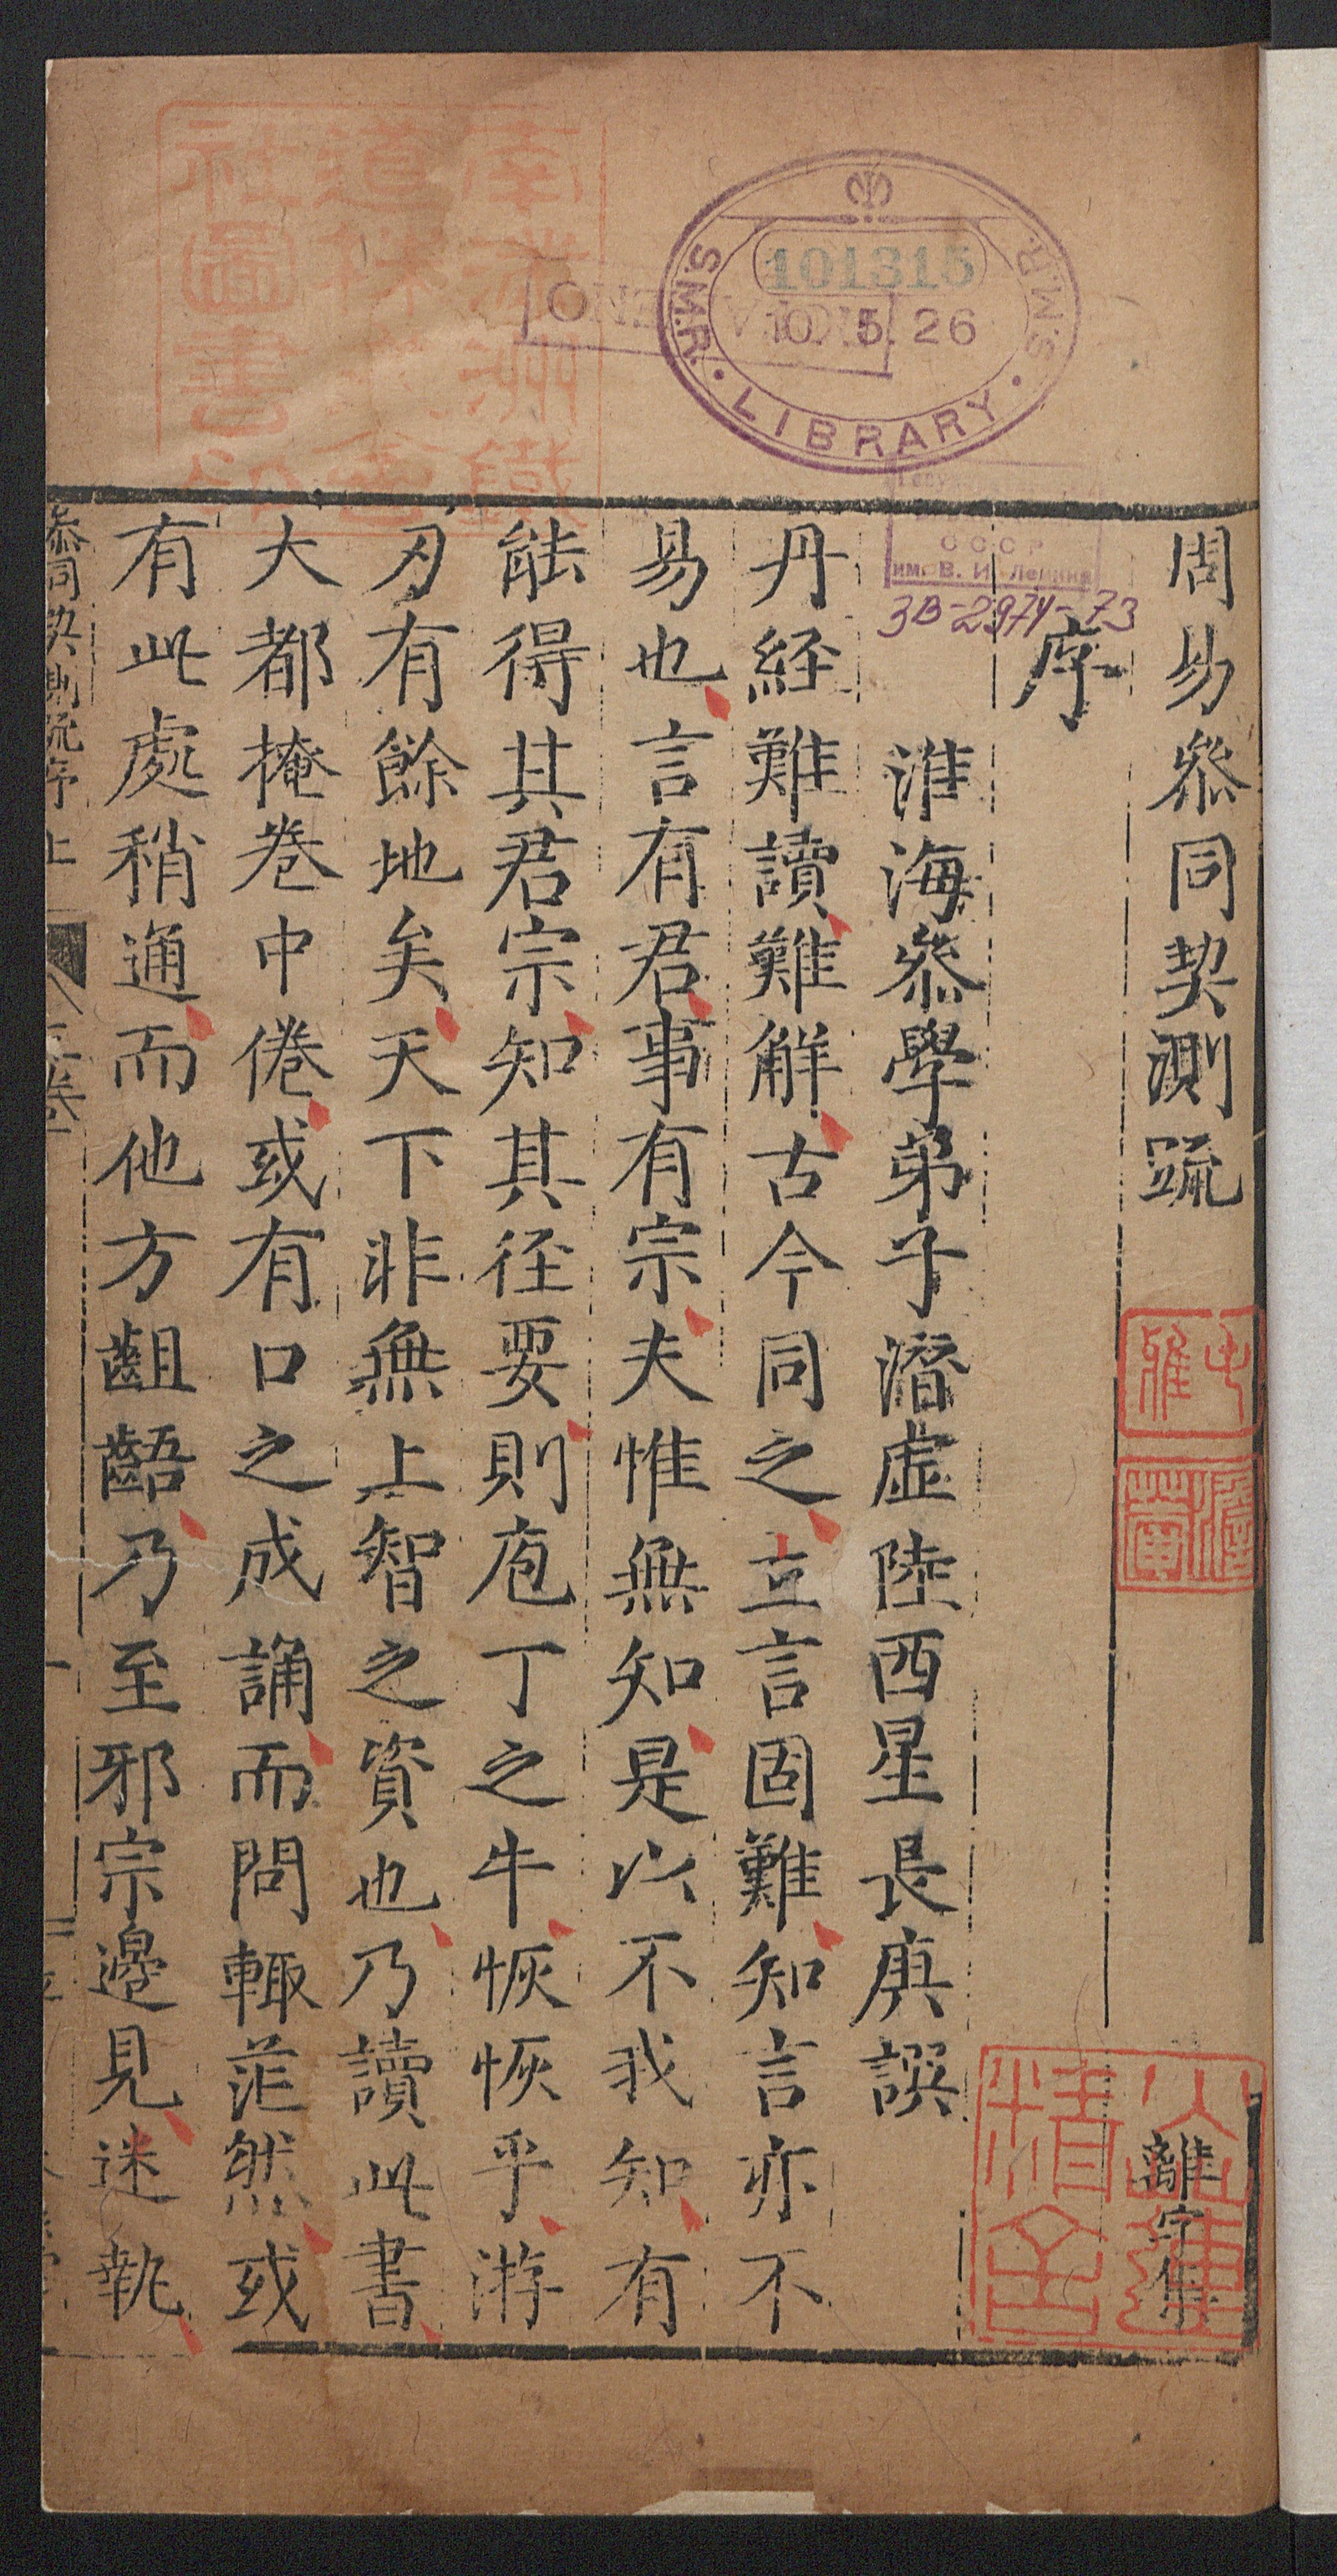 周易叅同契測疏
離字集
序
淮海叅學弟子潛虛陸西星長庚譔
丹經難讀難解古今同之立言固難知言亦不
易也言有君事有宗夫惟無知是以不我知有
能得其君宗知其徑要則庖丁之牛恢恢乎游
刃有餘地矣天下非無上智之資也乃讀此書
大都掩卷中倦或有口之成誦而問輙茫然或
有此處稍通而他方齟齬乃至邪宗邊見迷執
叅同契測疏序 上
101315
10. 5. 26
S.M.R. LIBRARY S.M.R.
СССР
им. В. И. Ленина
3В-2974-73
南滿洲鐵
道株式會
社圖書印